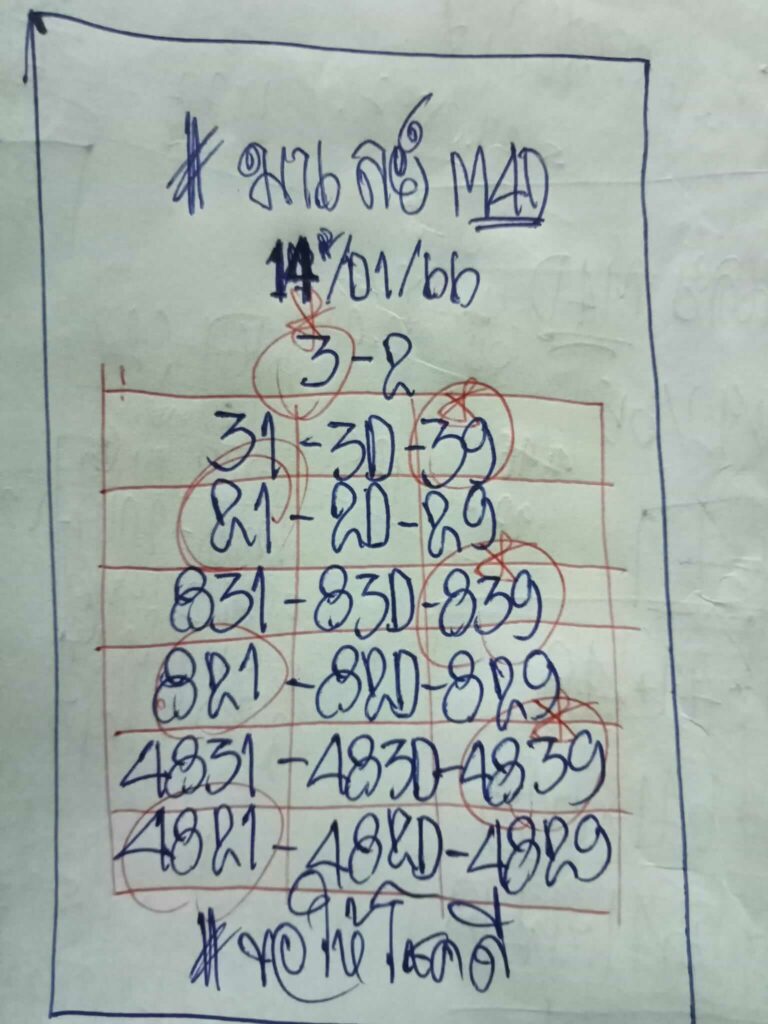 # มาเลย์ M4D
14/01/66
3-2
31-30-39
21-20-29
831-830-839
821-820-829
4831-4830-4839
4821-4820-4829
# ขอให้โชคดี